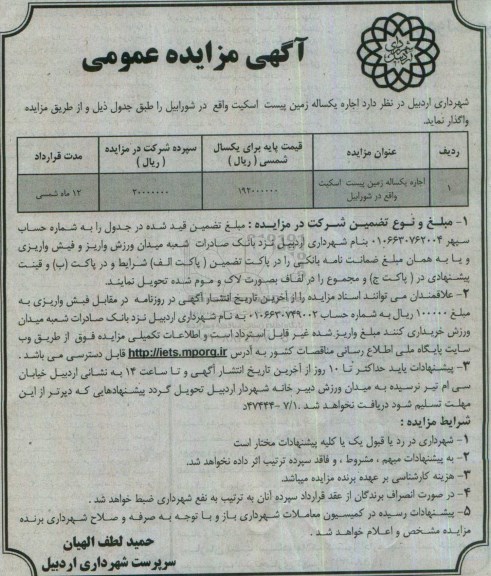 آگهی مزایده عمومی
شهرداری اردبیل در نظر دارد اجاره یکساله زمین پیست اسکیت واقع در شورابیل را طبق جدول ذیل و از طریق مزایده
واگذار نماید.
ردیف عنوان مزایده قیمت پایه برای یکسال شمسی ( ریال ) سپرده شرکت در مزایده ( ریال ) مدت قرارداد
۱ اجاره یکساله زمین پیست اسکیت واقع در شورابیل ۱۹۲۰۰۰۰۰۰ ۲۰۰۰۰۰۰۰ ۱۲ ماه شمسی
۱- مبلغ و نوع تضمین شرکت در مزایده : مبلغ تضمین قید شده در جدول را به شماره حساب
سپهر ۰۱۰۶۶۳۰۷۶۲۰۰۴ بنام شهرداری اردبیل نزد بانک صادرات شعبه میدان ورزش واریز و فیش واریزی
و یا به همان مبلغ ضمانت نامه بانکی را در پاکت تضمین ( پاکت الف) شرایط و در پاکت (ب) و قیمت
پیشنهادی در ( پاکت ج) و مجموع را در لفاف بصورت لاک و مهر شده تحویل نمایند.
۲- علاقمندان می توانند اسناد مزایده را از آخرین تاریخ انتشار آگهی در روزنامه در مقابل فیش واریزی به
مبلغ ۱۰۰۰۰۰ ریال به شماره حساب ۰۱۰۶۶۳۰۷۴۹۰۰۲ به نام شهرداری اردبیل نزد بانک صادرات شعبه میدان
ورزش خریداری کنند مبلغ واریز شده غیر قابل استرداد است و اطلاعات تکمیلی مزایده فوق از طریق وب
سایت پایگاه ملی اطلاع رسانی مناقصات کشور به آدرس http://iets.mporg.ir قابل دسترسی می باشد .
۳- پیشنهادات باید حداکثر تا ۱۰ روز از آخرین تاریخ انتشار آگهی و تا ساعت ۱۴ به نشانی اردبیل خیابان
سی ام تیر نرسیده به میدان ورزش دبیر خانه شهردار اردبیل تحویل گردد پیشنهادهایی که دیرتر از این
مهلت تسلیم شود دریافت نخواهد شد .۷/۱-
شرایط مزایده :
۱- شهرداری در رد یا قبول یک یا کلیه پیشنهادات مختار است
۲- به پیشنهادات مبهم ، مشروط ، و فاقد سپرده ترتیب اثر داده نخواهد شد.
۳- هزینه کارشناسی بر عهده برنده مزایده میباشد.
۴- در صورت انصراف برندگان از عقد قرارداد سپرده آنان به ترتیب به نفع شهرداری ضبط خواهد شد .
۵- پیشنهادات رسیده در کمیسیون معاملات شهرداری باز و با توجه به صرفه و صلاح شهرداری برنده
مزایده مشخص و اعلام خواهد شد .
حمید لطف الهیان
سرپرست شهرداری اردبیل